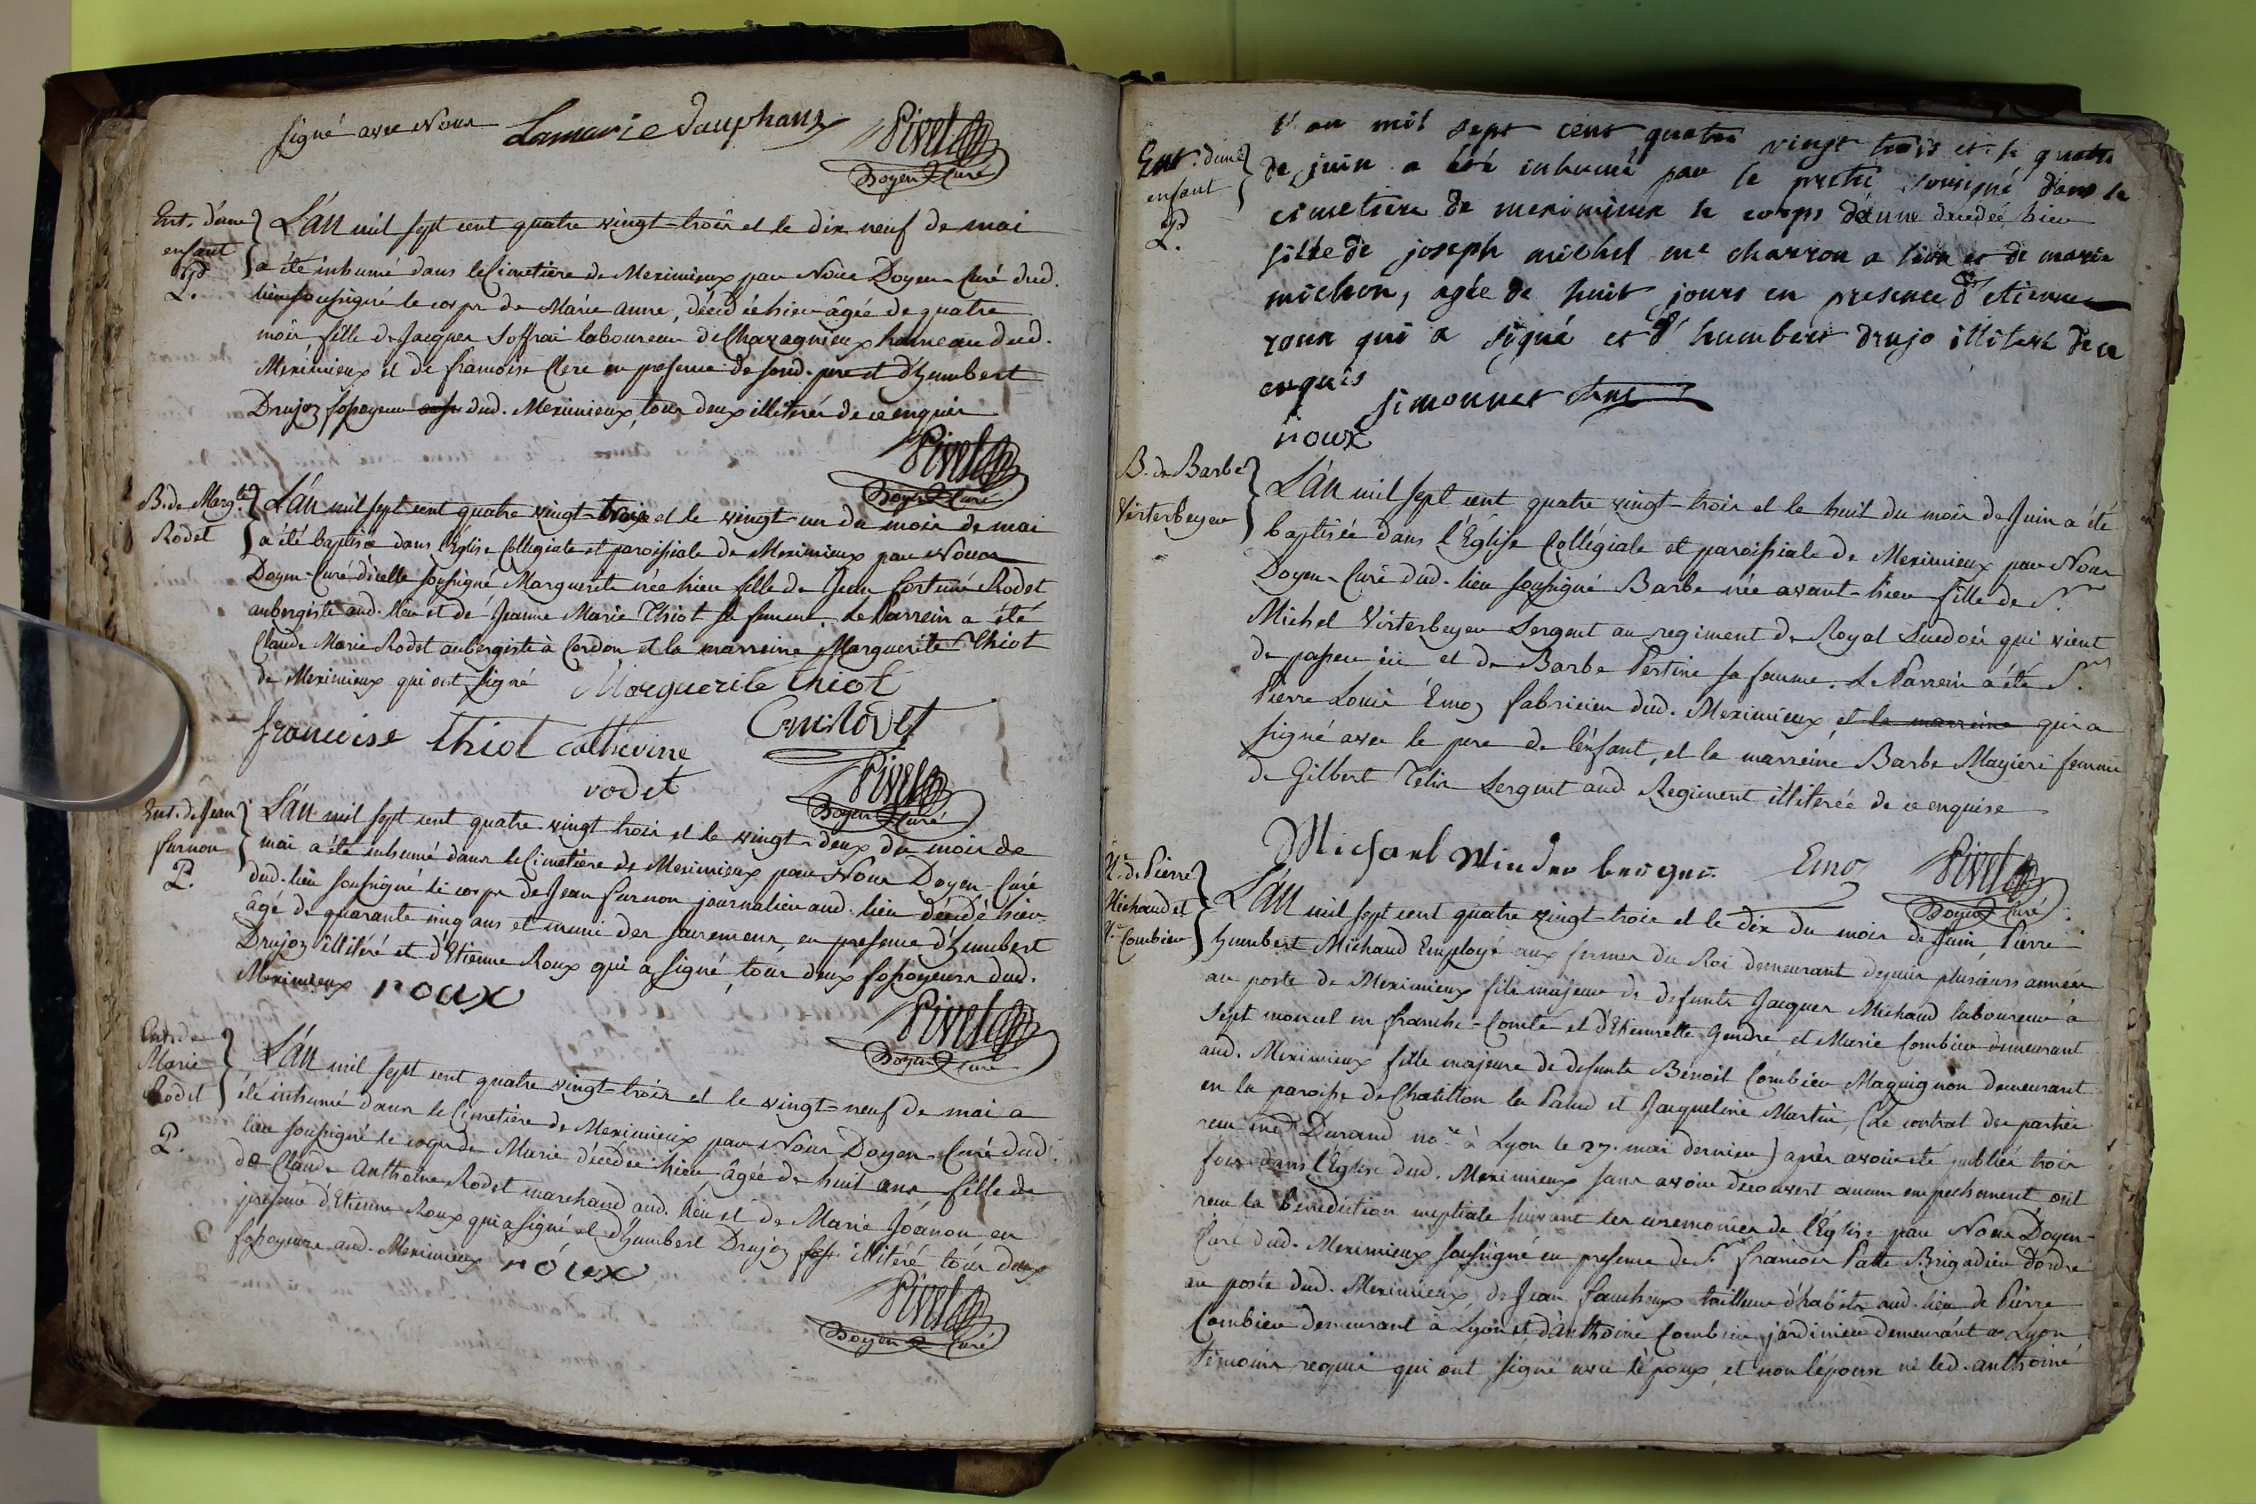 signé avec Nous Lamarie dauphant Pivet
Doyen Curé
Ent. d'une
enfant
P.
L'an mil sept cent quatre vingt-trois et le dix neuf de mai
a été inhumé dans le Cimetière de Meximieux par Nous Doyen-Curé dud.
lieu soussigné le corps de Marie Anne, décédée hier âgée de quatre
mois, fille de Jacques Soffrai laboureur de Charagneux hameau dud.
Meximieux et de françoise Clerc en presence de sond. pere et d'humbert
Drujoz fossoyeur dud. Meximieux, tous deux illiterés de ce enquis
Pivet
Doyen Curé
B. de Marg.te
Rodet
L'an mil sept cent quatre vingt-trois et le vingt-un du mois de mai
a été baptisée dans l'Eglise Collégiale et paroissiale de Meximieux par Nous
Doyen-Curé d'icelle soussigné Marguerite née hier fille de Jean Rodet
aubergiste aud. lieu et de Jeanne Marie Thiot sa femme. Le Parrein a été
Claude Marie Rodet aubergiste à Cerdon et la marreine Marguerite Thiot
de Meximieux qui ont signé Marguerite thiot
francoise thiot catherine
rodet
Pivet
Doyen Curé
Ent. de Jean
furnon
P.
L'an mil sept cent quatre vingt trois et le vingt-deux du mois de
mai a été inhumé dans le Cimetière de Meximieux par Nous Doyen-Curé
dud. lieu soussigné le corps de Jean furnon journalier aud. lieu décédé hier
âgé de quarante cinq ans et muni des sacremens, en presence d'humbert
Drujoz illitéré et d'Etienne Roux qui a signé, tous deux fossoyeurs dud.
Meximieux roux
Pivet
Doyen Curé
Ent. de
Marie
Rodet
P.
L'an mil sept cent quatre vingt-trois et le vingt-neuf de mai a
été inhumé dans le Cimetière de Meximieux par Nous Doyen-Curé dud.
lieu soussigné le corps de Marie décédée hier, âgée de huit ans fille de
de Claude Anthoine Rodet marchand aud. lieu et de Marie Joánon en
presence d'Etienne Roux qui a signé et d'humbert Drujoz illitéré tous deux
fossoyeurs aud. Meximieux roux
Pivet
Doyen Curé
Ent. d'une
enfant
P.
l'an mil sept cent quatre vingt trois et le quatre
de juin a été inhumé par le prêtre soussigné dans le
cimetiere de meximieux le corps d'anne decedée hier
fille de joseph michel me charron a lion et de marie
michon, agée de huit jours en presence d'etienne
roux qui a signé et d'humbert drujo illiteré de ce
enquis
simonnet
roux
B. de Barbe
Visterbeyer
L'an mil sept cent quatre vingt-trois et le huit du mois de Juin a été
baptisée dans l'Eglise Collégiale et paroissiale de Meximieux par Nous
Doyen-Curé dud. lieu soussigné Barbe née avant-hier fille de Sr.
Michel Visterbeyer Sergent au regiment de Royal Suedois qui vient
de passer ici et de Barbe Pertine sa femme. Le Parrein a été Sr.
Pierre Louis Emoz fabricien dud. Meximieux et la marreine qui a
signé avec le pere de l'enfant, et la marreine Barbe Magieri femme
de Gilbert Telin Sergent aud. Regiment illiterée de ce enquise
Emoz Pivet
Doyen Curé
M. de Pierre
Michaud et
Combier
L'an mil sept cent quatre vingt-trois et le dix du mois de Juin Pierre
humbert Michaud Employé aux fermes du Roi demeurant depuis plusieurs années
au poste de Meximieux fils majeur de defunts Jacques Michaud laboureur à
Sept moncel en franche-Comté et d'Etiennette Gendre, et Marie Combier demeurant
aud. Meximieux fille majeure de defunts Benoit Combier Maquignon demeurant
en la paroisse de Chatillon la Palud et Jacqueline Martin, (le contrat des parties
reçu me Durand no.re à Lyon le 27. mai dernier) après avoir été publiés trois
fois dans l'Eglise dud. Meximieux sans avoir découvert aucun empechement ont
reçu la benediction nuptiale suivant les ceremonies de l'Eglise par Nous Doyen-
Curé dud. Meximieux soussigné en presence de Sr. françois Patte Brigadier d'ordre
au poste dud. Meximieux, de Jean fauchoux tailleur d'habits aud. lieu de Pierre
Combier demeurant à Lyon et d'anthoine Combier jardinier demeurant a Lyon
témoins requis qui ont signé avec l'époux, et non l'épouse ni led. anthoine